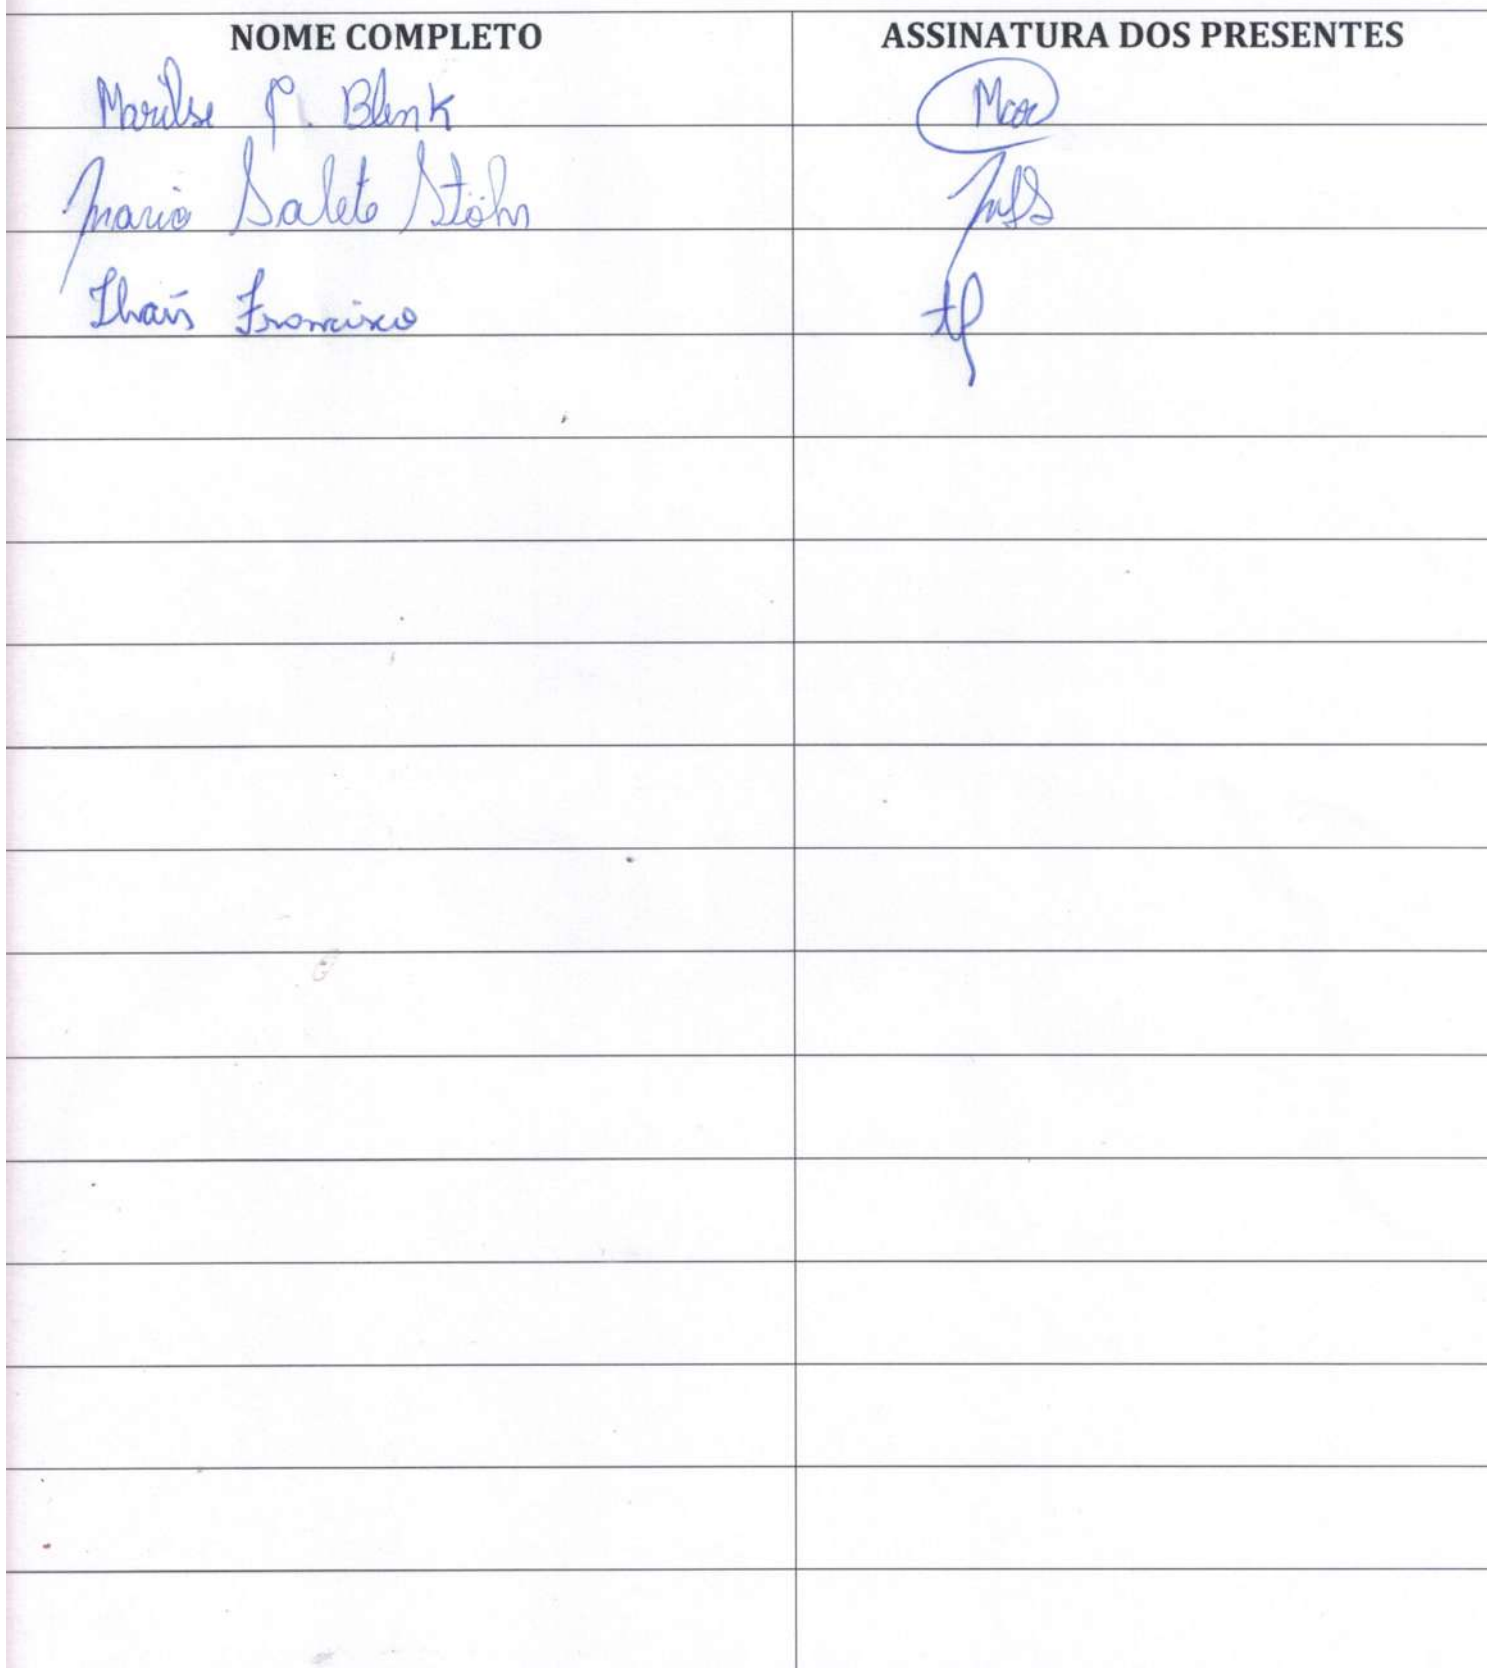 NOME COMPLETO ASSINATURA DOS PRESENTES
Marilse P. Blenk
Maria Salete Stöhr
Thaís Francisco